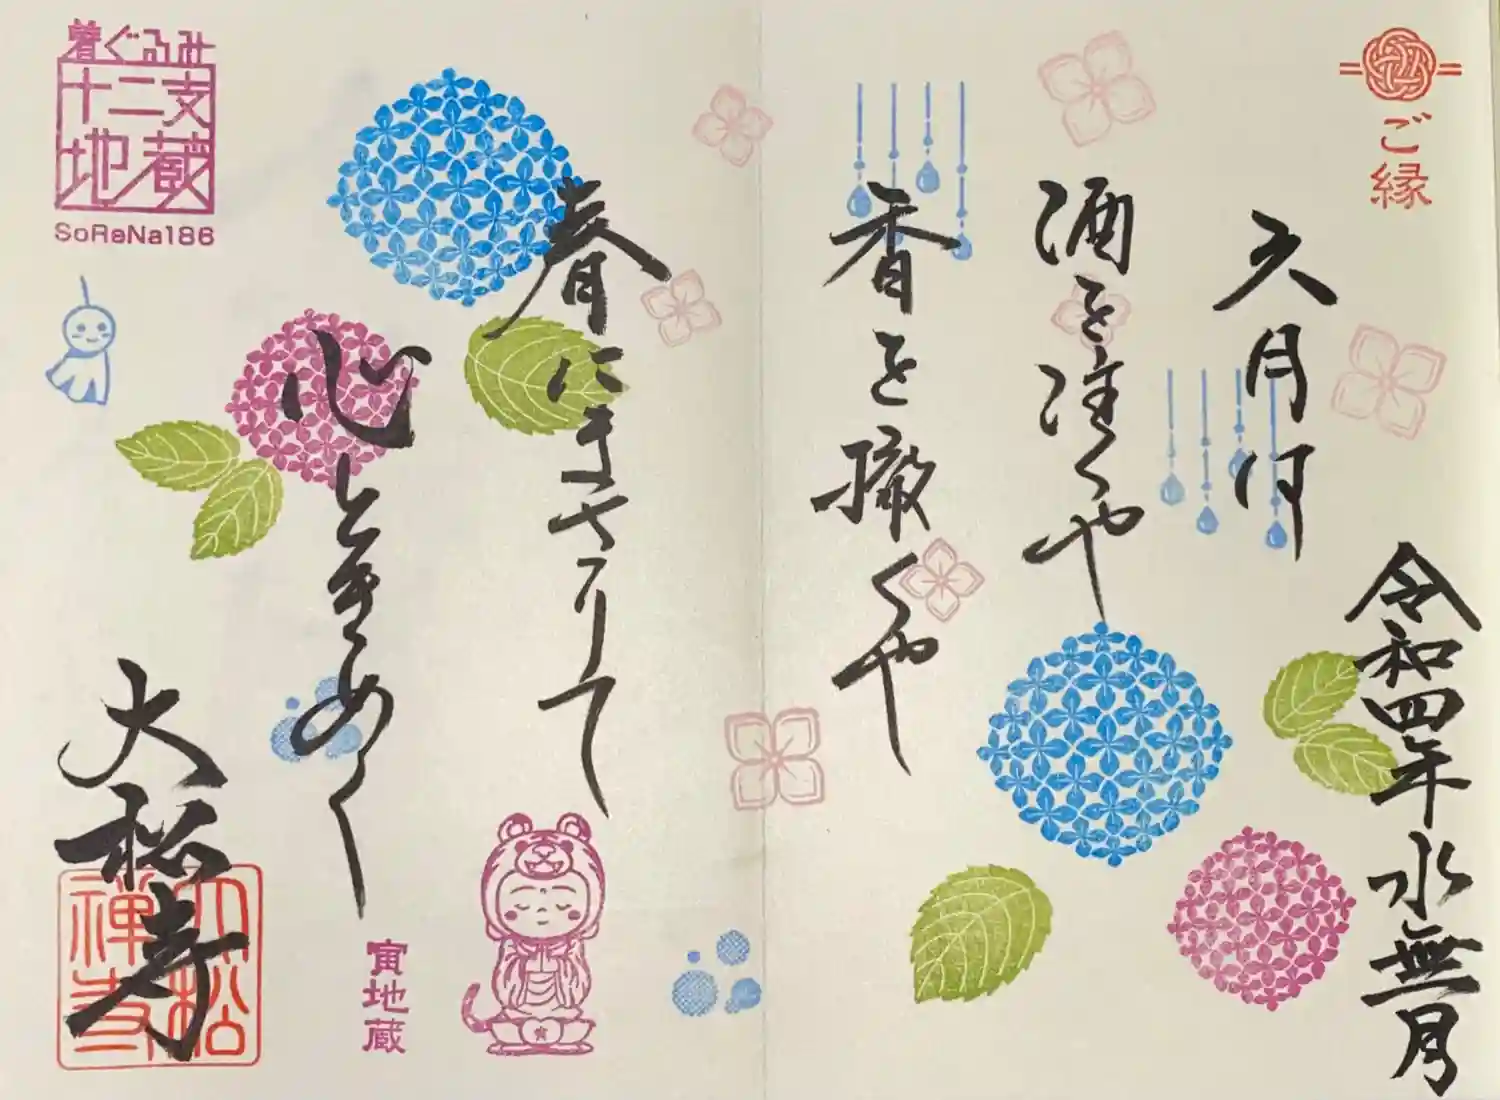 ご縁
令和四年水無月
六月は
酒を注ぐや
香を撒くや
春にまさりて
心ときめく
大松寺
大松禅寺
寅地蔵
着ぐるみ
十二支
地蔵
SoReNa186